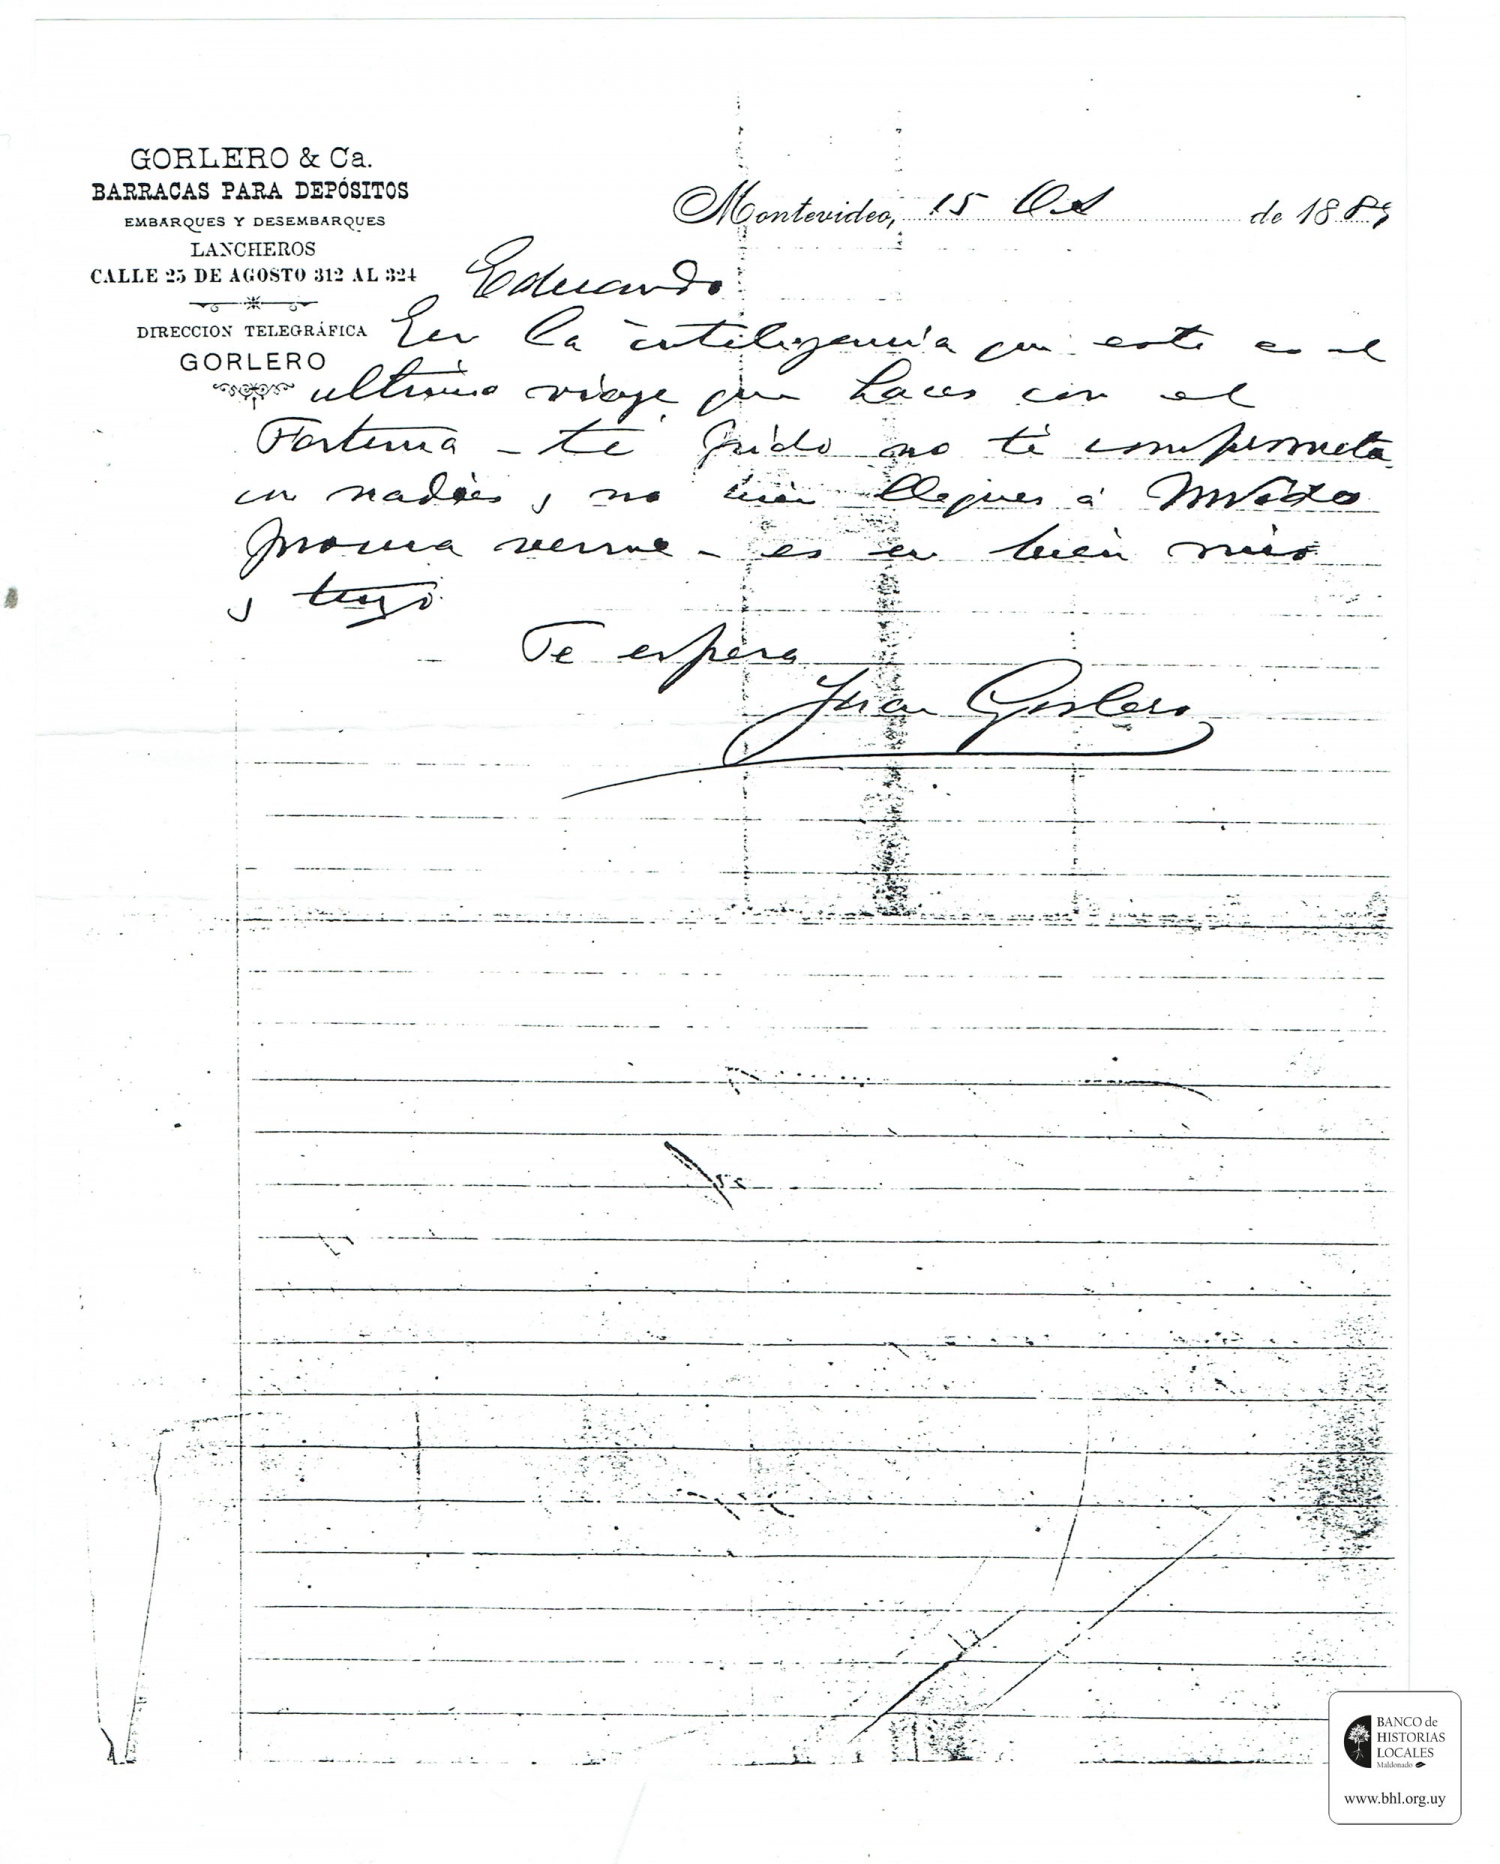 GORLERO & Ca.
BARRACAS PARA DEPÓSITOS
EMBARQUES Y DESEMBARQUES
LANCHEROS
CALLE 25 DE AGOSTO 312 AL 324
DIRECCION TELEGRÁFICA
GORLERO
Montevideo, 15 Oct de 1889
Eduardo
En la inteligencia que este es el
ultimo viage que haces con el
Fortuna – te pido no te comprometa
con nadies y no bien llegues á Mvideo
procura verme – es en bien mio
y tuyo
Te espera
Juan Gorlero
BANCO de
HISTORIAS
LOCALES
Maldonado
www.bhl.org.uy